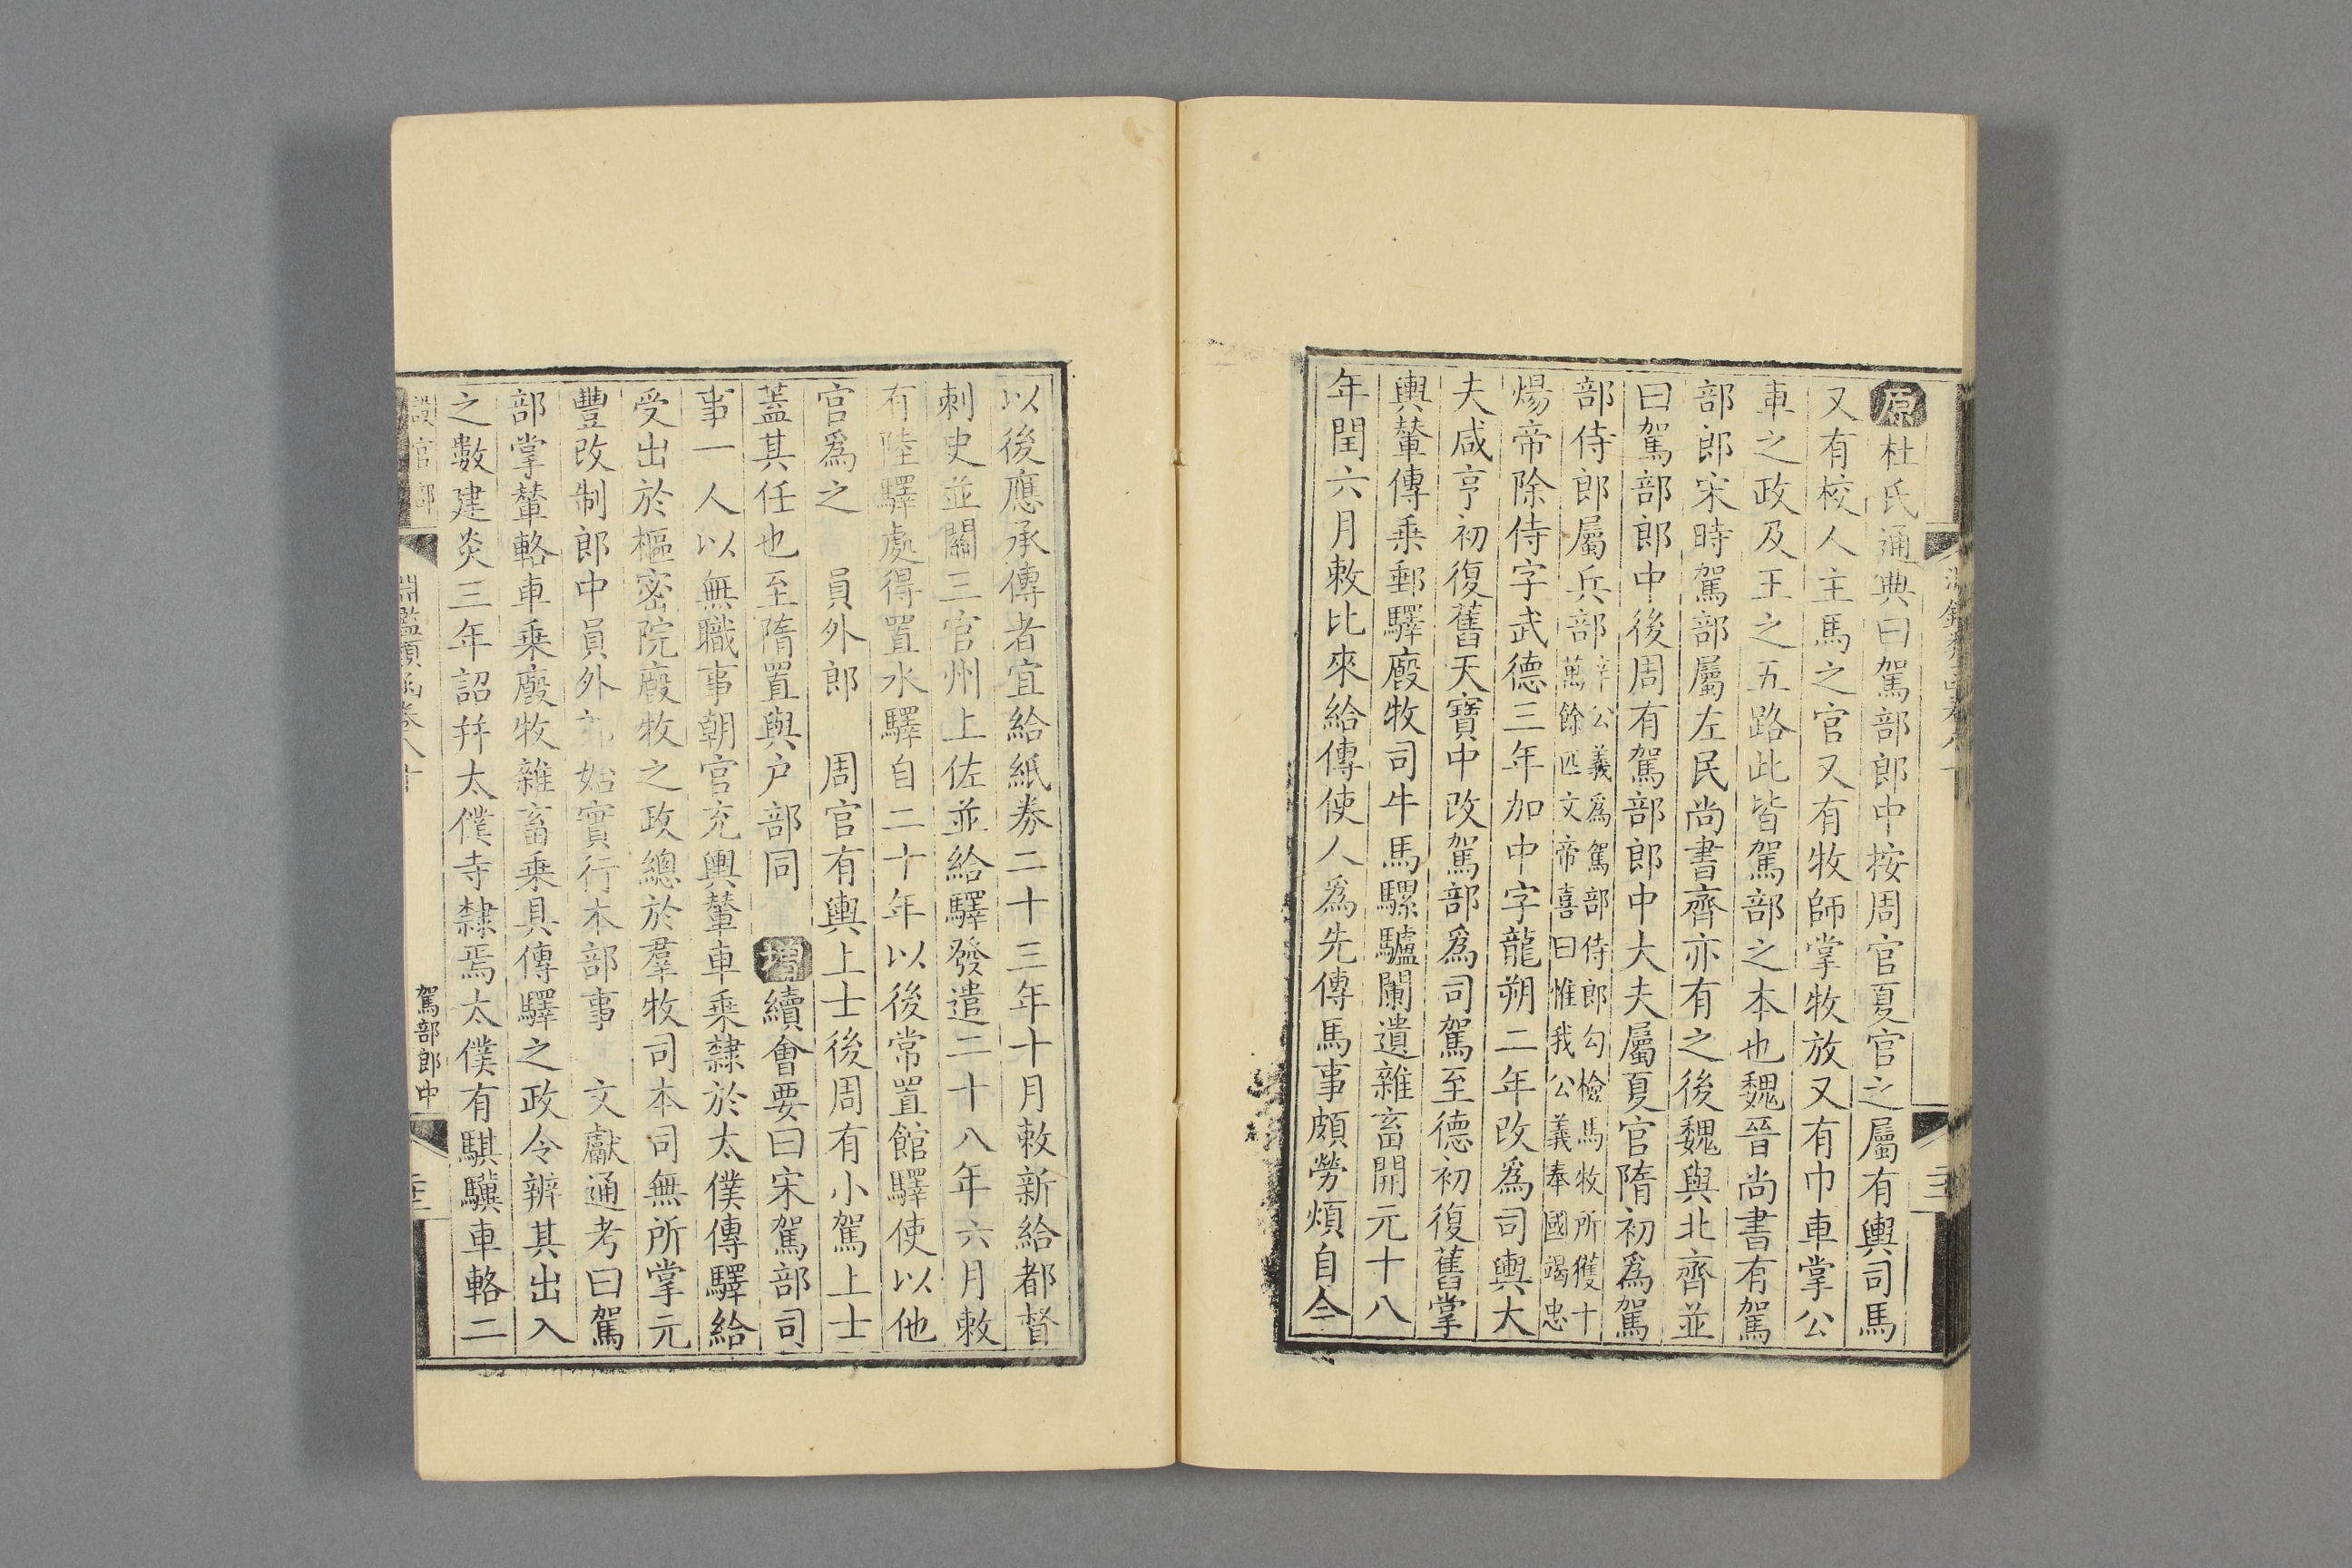 原杜氏通典曰駕部郎中按周官夏官之屬有輿司馬
又有校人主馬之官又有牧師掌牧放又有巾車掌公
車之政及王之五路此皆駕部之本也魏晉尚書有駕
部郎宋時駕部屬左民尚書齊亦有之後魏與北齊並
曰駕部郎中後周有駕部郎中大夫屬夏官隋初爲駕
部侍郎屬兵部辛公義爲駕部侍郎勾檢馬牧所獲十
萬餘匹文帝喜曰惟我公義奉國竭忠
煬帝除侍字武德三年加中字龍朔二年改爲司輿大
夫咸亨初復舊天寶中改駕部爲司駕至德初復舊掌
輿輦傳乗郵驛廄牧司牛馬騾驢闌遺雜畜開元十八
年閏六月敕比來給傳使人爲先傳馬事頗勞煩自今
以後應承傳者宜給紙券二十三年十月敕新給都督
刺史並關三官州上佐並給驛發遣二十八年六月敕
有陸驛處得置水驛自二十年以後常置館驛使以他
官爲之　員外郎　周官有輿上士後周有小駕上士
蓋其任也至隋置與户部同　增續會要曰宋駕部司
事一人以無職事朝官充輿輦車乗隸於太僕傳驛給
受出於樞密院廄牧之政總於羣牧司本司無所掌元
豐改制郎中員外郎始實行本部事　文獻通考曰駕
部掌輦輅車乗廄牧雜畜乗具傳驛之政令辨其出入
之數建炎三年詔幷太僕寺隸焉太僕有騏驥車輅二
設官部
淵鑑類函卷八十
駕部郎中